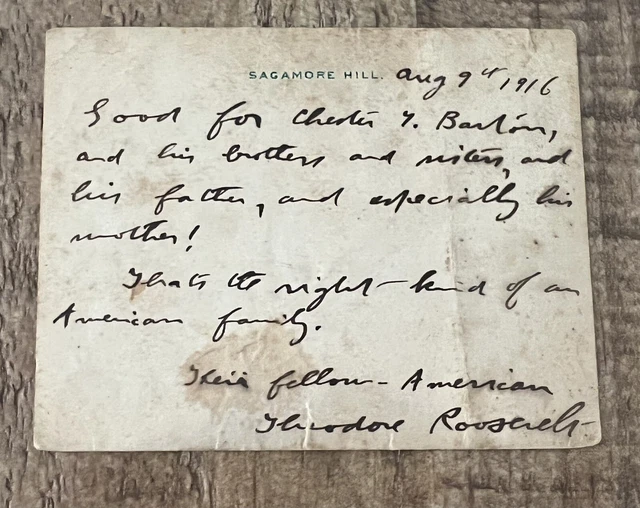 SAGAMORE HILL. Aug 9th 1916
Good for Chester T. Barton,
and his brothers and sisters, and
his father, and especially his
mother!
Thats the right kind of an
American family.
Their fellow-American
Theodore Roosevelt